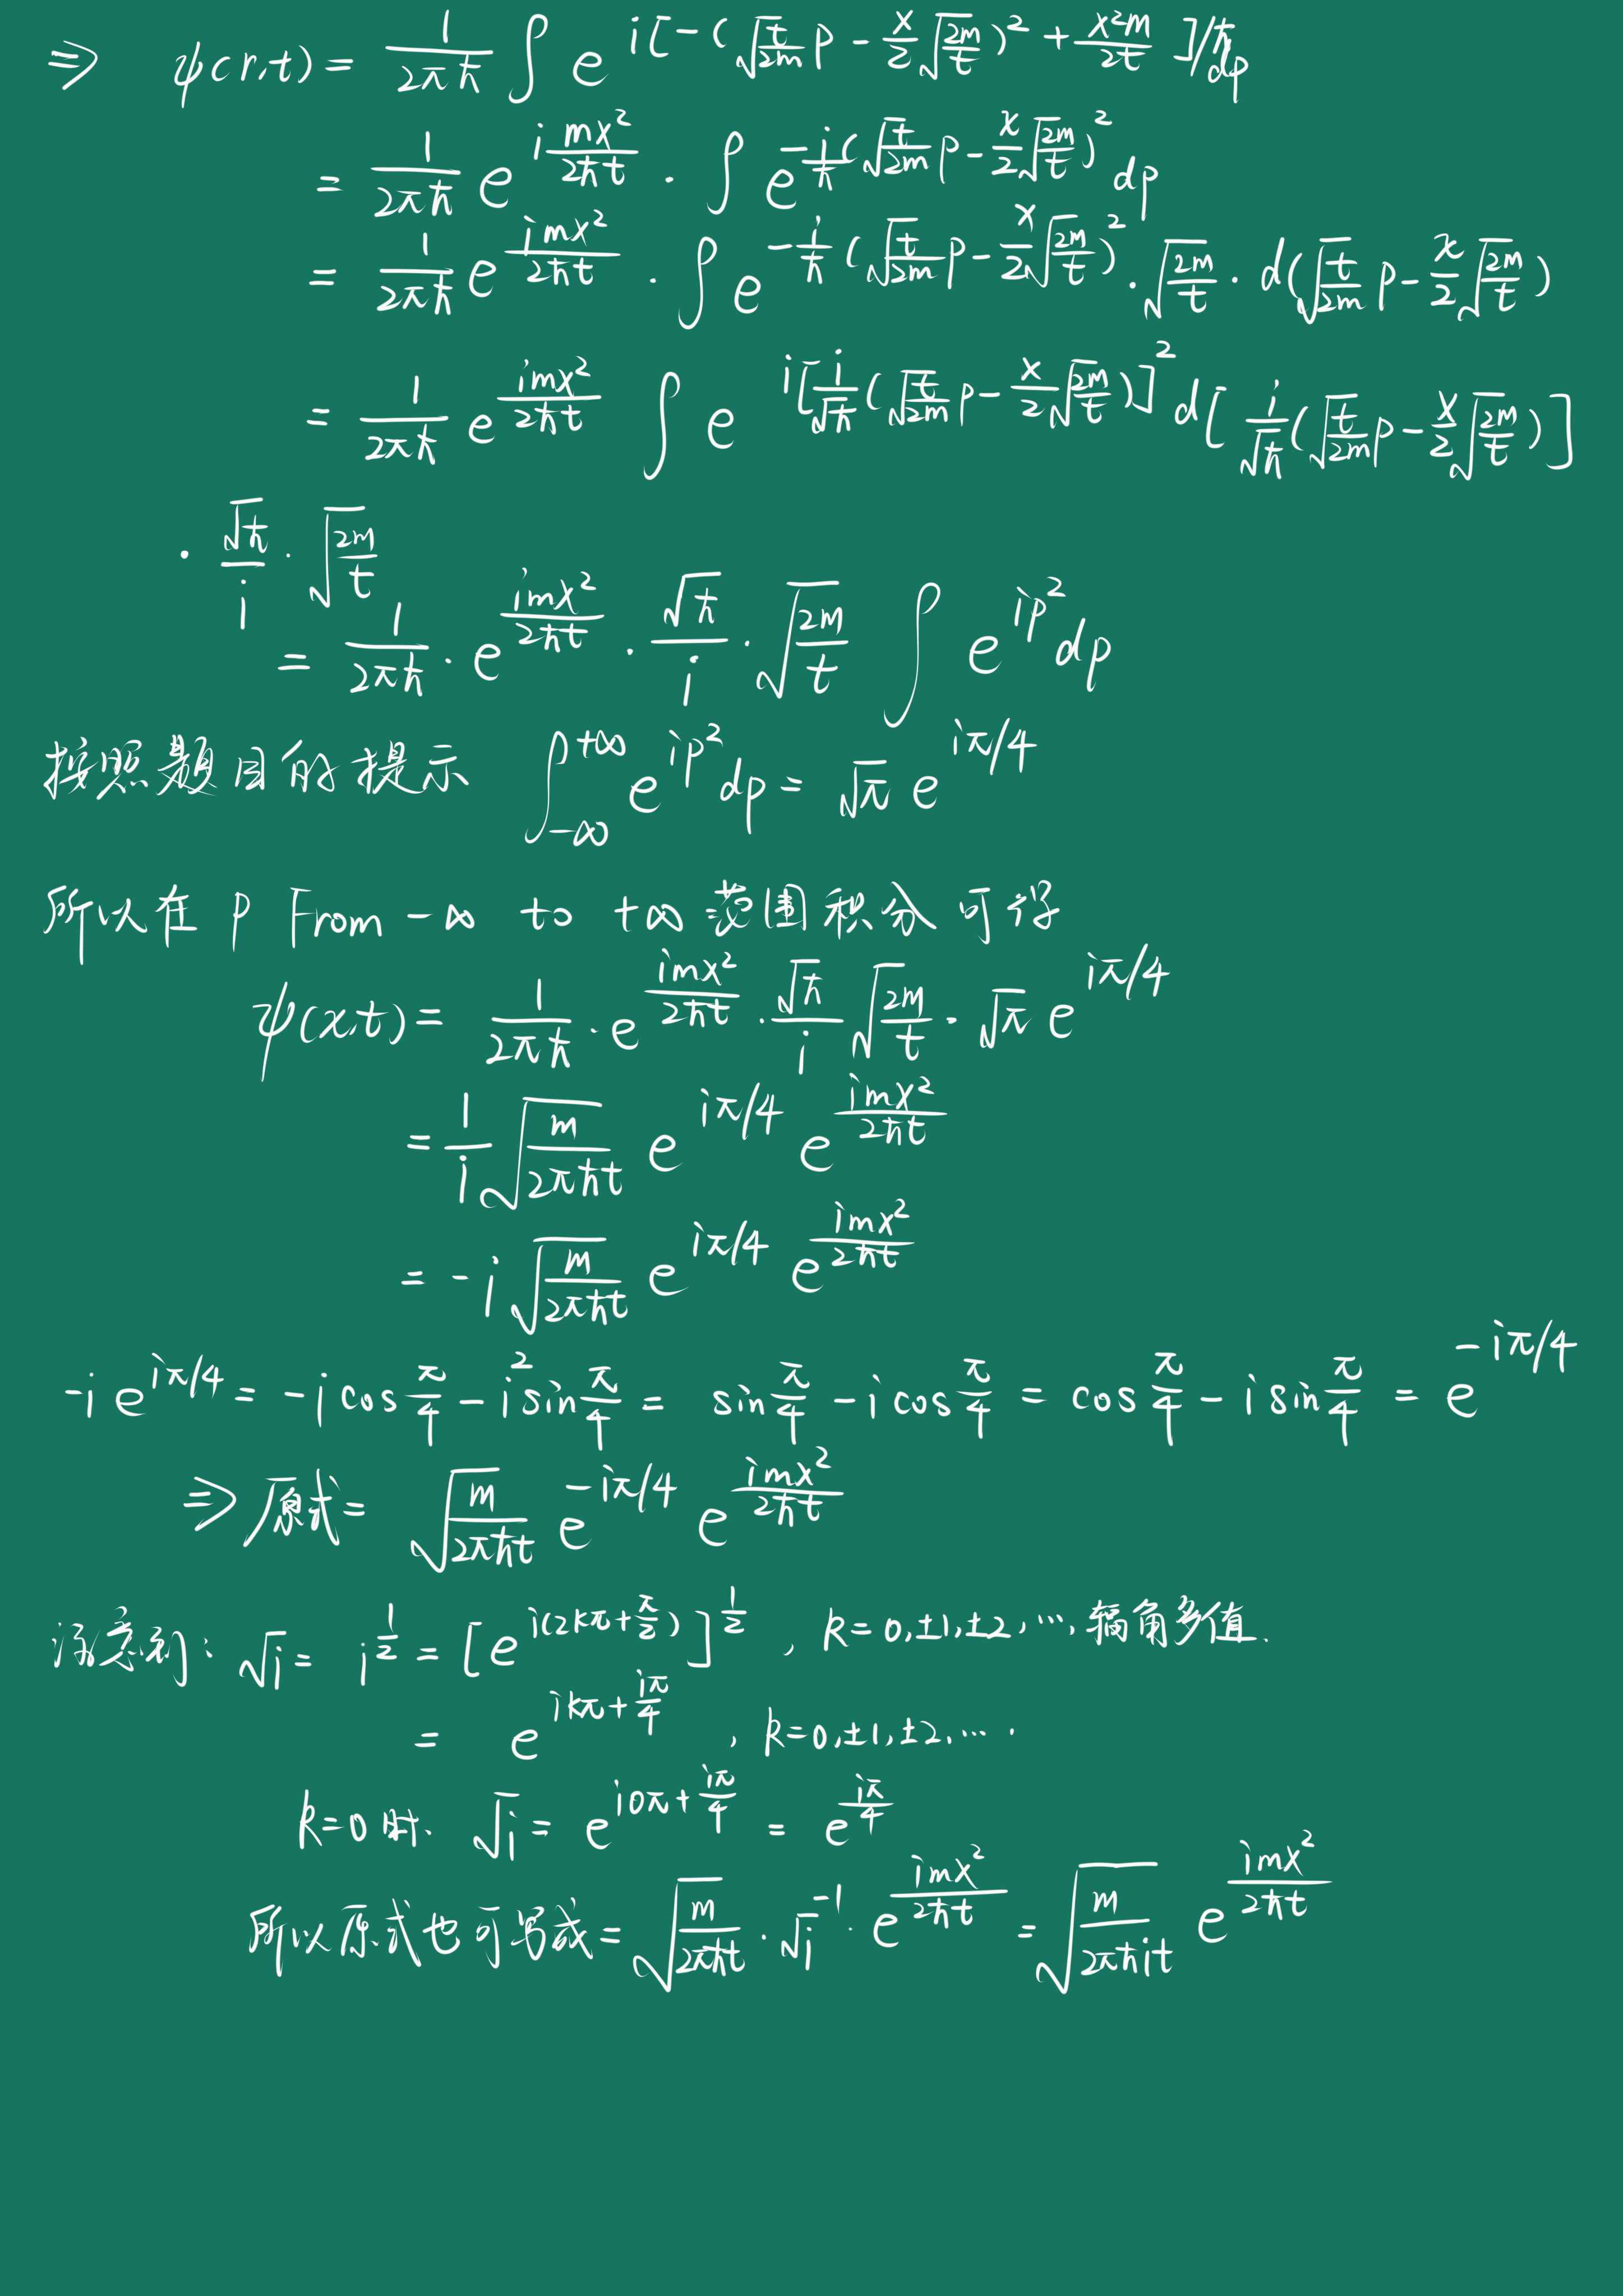 ⇒ ψ(r,t) = \frac{1}{2πħ} ∫ e^{i[-(\sqrt{\frac{t}{2m}}p - \frac{x}{2}\sqrt{\frac{2m}{t}})^2 + \frac{x^2m}{2t}]/ħ} dp
= \frac{1}{2πħ} e^{i\frac{mx^2}{2ħt}} · ∫ e^{-\frac{i}{ħ}(\sqrt{\frac{t}{2m}}p - \frac{x}{2}\sqrt{\frac{2m}{t}})^2} dp
= \frac{1}{2πħ} e^{\frac{imx^2}{2ħt}} · ∫ e^{-\frac{i}{ħ}(\sqrt{\frac{t}{2m}}p - \frac{x}{2}\sqrt{\frac{2m}{t}})^2} · \sqrt{\frac{2m}{t}} · d(\sqrt{\frac{t}{2m}}p - \frac{x}{2}\sqrt{\frac{2m}{t}})
= \frac{1}{2πħ} e^{\frac{imx^2}{2ħt}} ∫ e^{i[\frac{i}{\sqrt{ħ}}(\sqrt{\frac{t}{2m}}p - \frac{x}{2}\sqrt{\frac{2m}{t}})]^2} d[\frac{i}{\sqrt{ħ}}(\sqrt{\frac{t}{2m}}p - \frac{x}{2}\sqrt{\frac{2m}{t}})]
· \frac{\sqrt{ħ}}{i} · \sqrt{\frac{2m}{t}}
= \frac{1}{2πħ} · e^{\frac{imx^2}{2ħt}} · \frac{\sqrt{ħ}}{i} · \sqrt{\frac{2m}{t}} ∫ e^{ip^2} dp
按照题目的提示 ∫_{-∞}^{+∞} e^{ip^2} dp = \sqrt{π} e^{iπ/4}
所以在 p From -∞ to +∞ 范围积分可得
ψ(x,t) = \frac{1}{2πħ} · e^{\frac{imx^2}{2ħt}} · \frac{\sqrt{ħ}}{i} \sqrt{\frac{2m}{t}} · \sqrt{π} e^{iπ/4}
= \frac{1}{i} \sqrt{\frac{m}{2πħt}} e^{iπ/4} e^{\frac{imx^2}{2ħt}}
= -i \sqrt{\frac{m}{2πħt}} e^{iπ/4} e^{\frac{imx^2}{2ħt}}
-i e^{iπ/4} = -i cos\frac{π}{4} - i^2 sin\frac{π}{4} = sin\frac{π}{4} - i cos\frac{π}{4} = cos\frac{π}{4} - i sin\frac{π}{4} = e^{-iπ/4}
⇒ 原式 = \sqrt{\frac{m}{2πħt}} e^{-iπ/4} e^{\frac{imx^2}{2ħt}}
注意到: \sqrt{i} = i^{\frac{1}{2}} = [e^{i(2kπ+\frac{π}{2})}]^{\frac{1}{2}}, k=0,±1,±2,…, 辐角多值.
= e^{ikπ+\frac{iπ}{4}}, k=0,±1,±2,….
k=0时. \sqrt{i} = e^{i0π+\frac{iπ}{4}} = e^{\frac{iπ}{4}}
所以原式也可写成 = \sqrt{\frac{m}{2πħt}} · \sqrt{i}^{-1} · e^{\frac{imx^2}{2ħt}} = \sqrt{\frac{m}{2πħit}} e^{\frac{imx^2}{2ħt}}